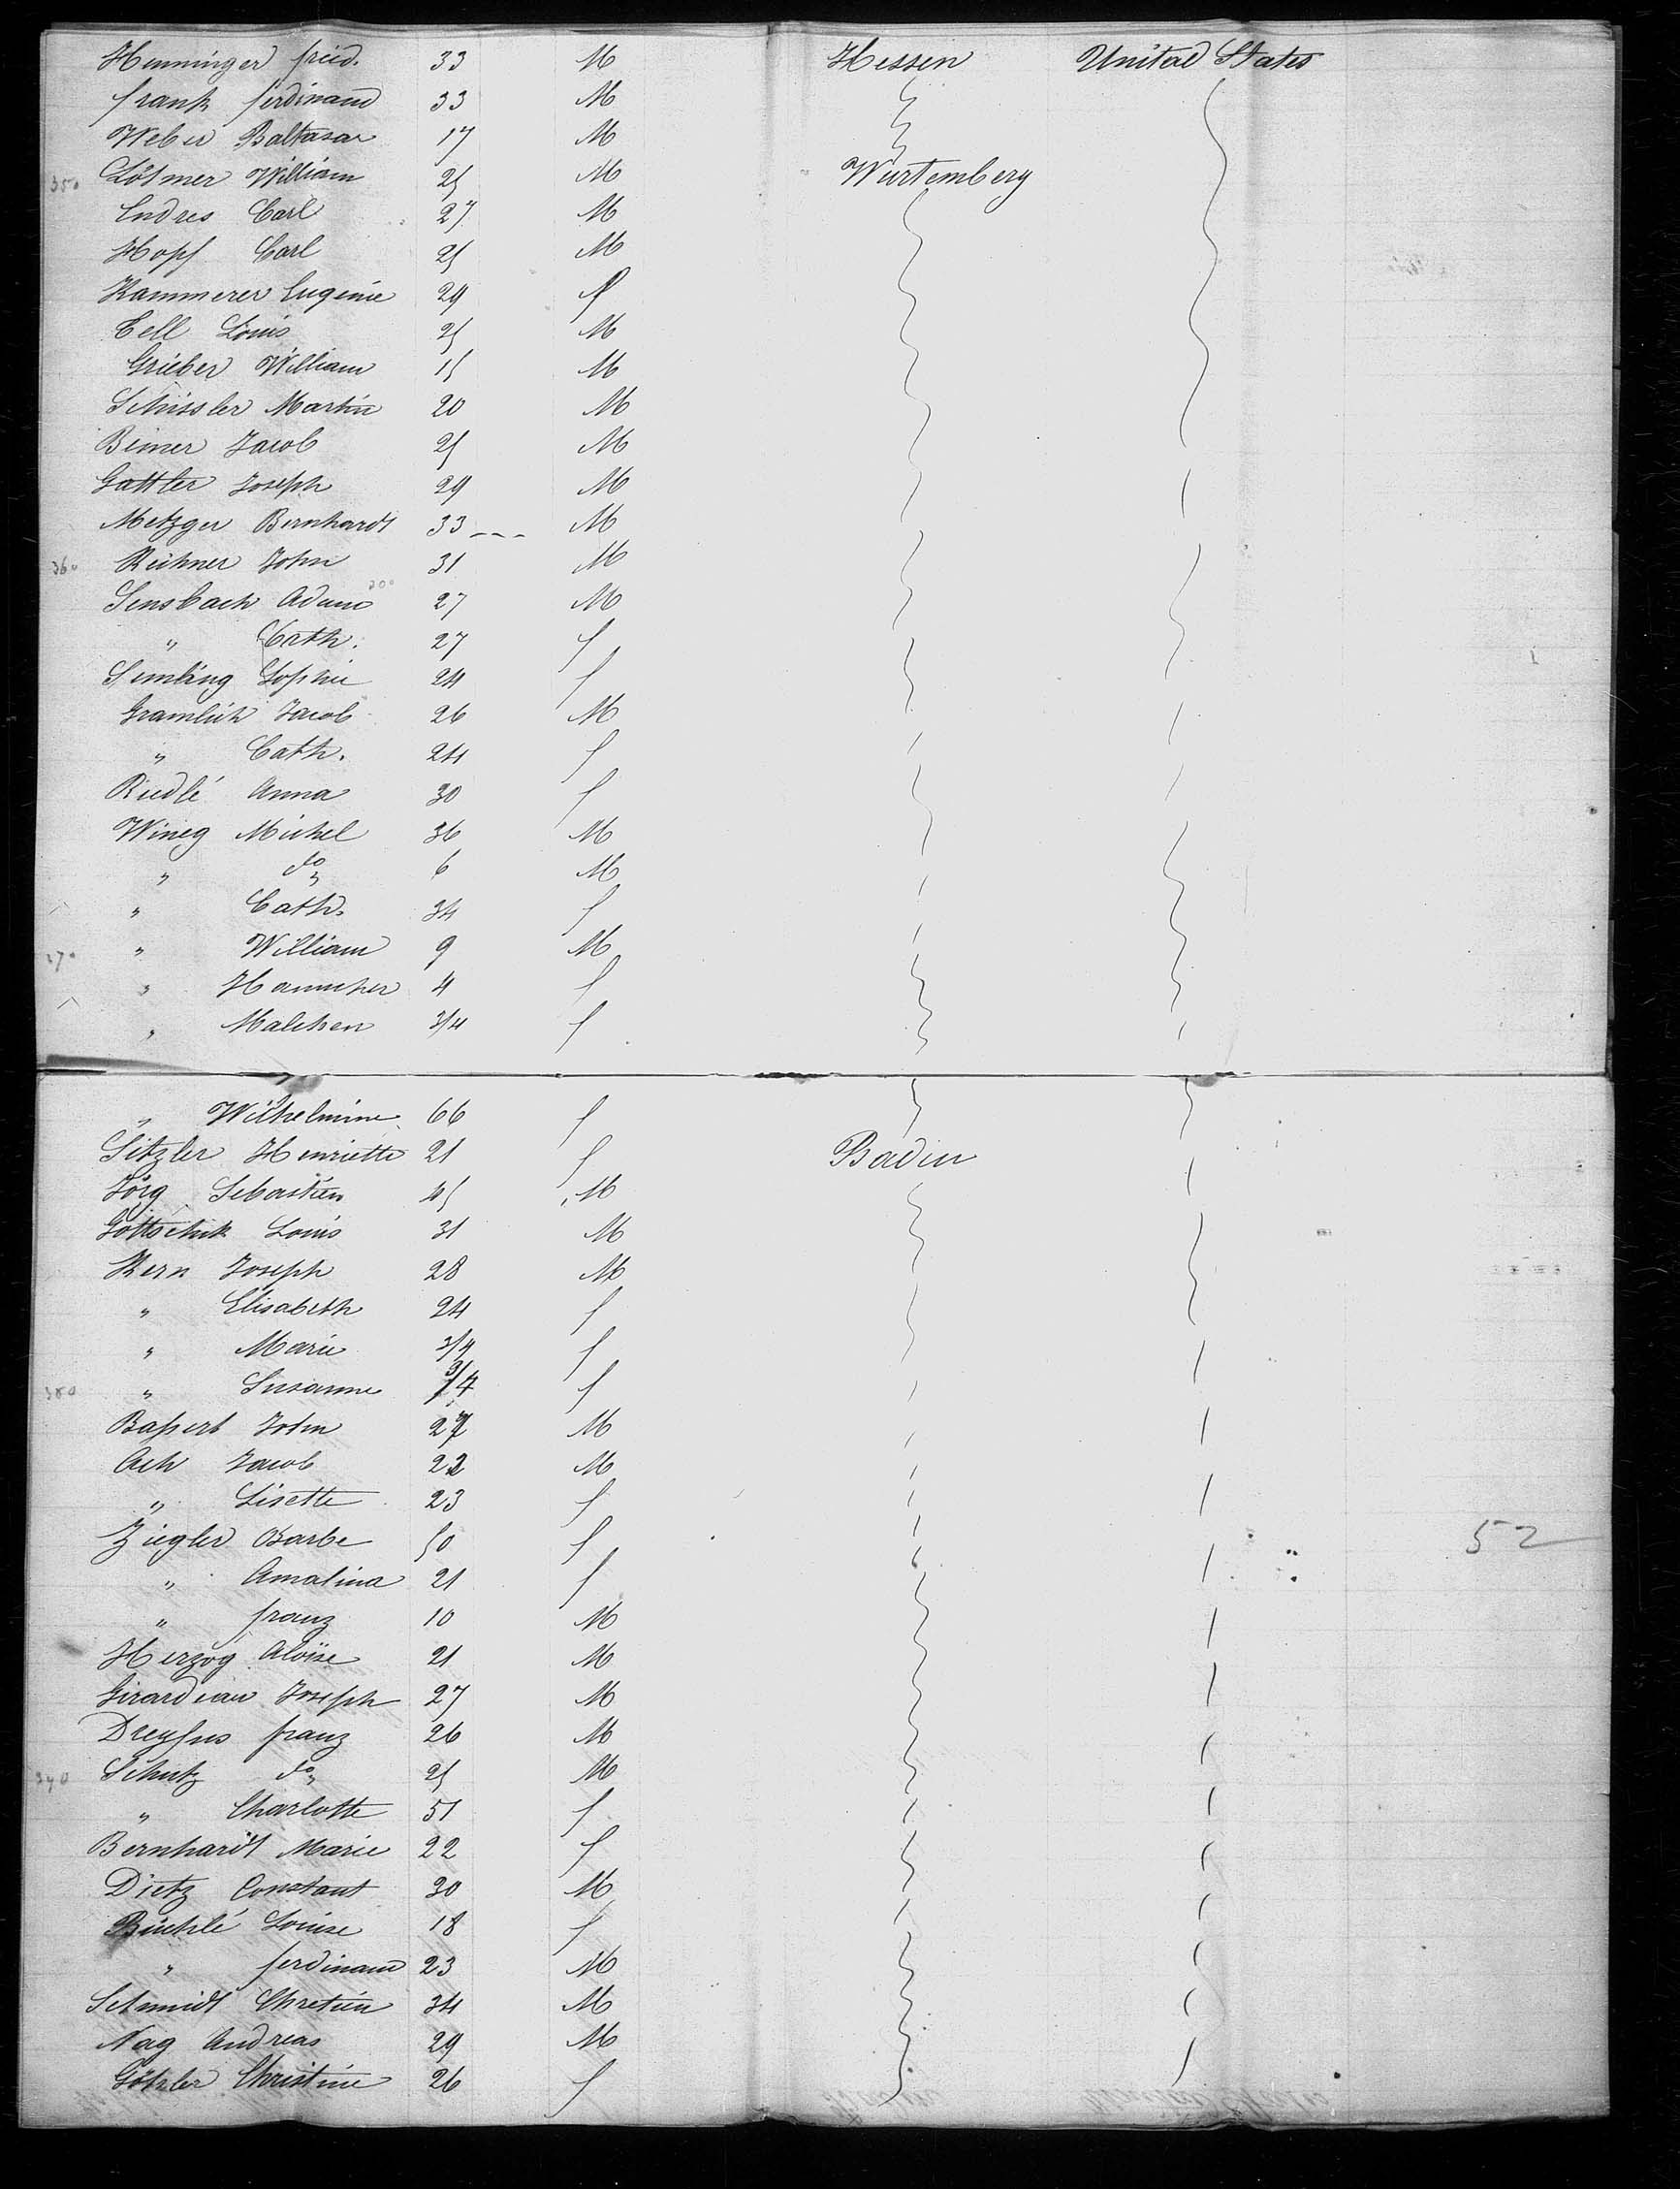 Henninger fried. 33 M Hessen United States
frank ferdinand 33 M
Weber Baltasar 17 M
350 Lötmer William 25 M Wurtemberg
Endres Carl 27 M
Hopf Carl 25 M
Kammerer Eugenie 29 f
Cell Louis 25 M
Grieber William 15 M
Schissler Martin 20 M
Beiner Jacob 25 M
Gattler Joseph 29 M
Metzger Bernhardt 33 --- M
360 Reihner John 31 M
Sensbach Adam 27 M
" Cath. 27 f
Simling Sophie 24 f
Gramlich Jacob 26 M
" Cath. 24 f
Riedlé Anna 30 f
Wineg Michel 36 M
" do 6 M
" Cath. 34 f
370 " William 9 M
" Hannchen 4 f
" Malchen 3/4 f
" Wilhelmine 66 f
Sitzler Henriette 21 f Baden
Jörg Sebastien 45 M
Gottschik Louis 31 M
Kern Joseph 28 M
" Elisabeth 24 f
" Marie 3/4 f
380 " Susanne 3/4 f
Bassert John 27 M
Ach Jacob 22 M
" Lisette 23 f
Ziegler Barbe 50 f 52
" Amalina 21 f
" franz 10 M
Herzog Aloïse 21 M
Girardeau Joseph 27 M
Dreyfus franz 26 M
390 Schutz do 25 M
" Charlotte 51 f
Bernhardt Marie 22 f
Dietz Constant 30 M
Büchlé Louise 18 f
" ferdinand 23 M
Schmidt Chretien 34 M
Nag Andreas 29 M
Götzler Christine 26 f